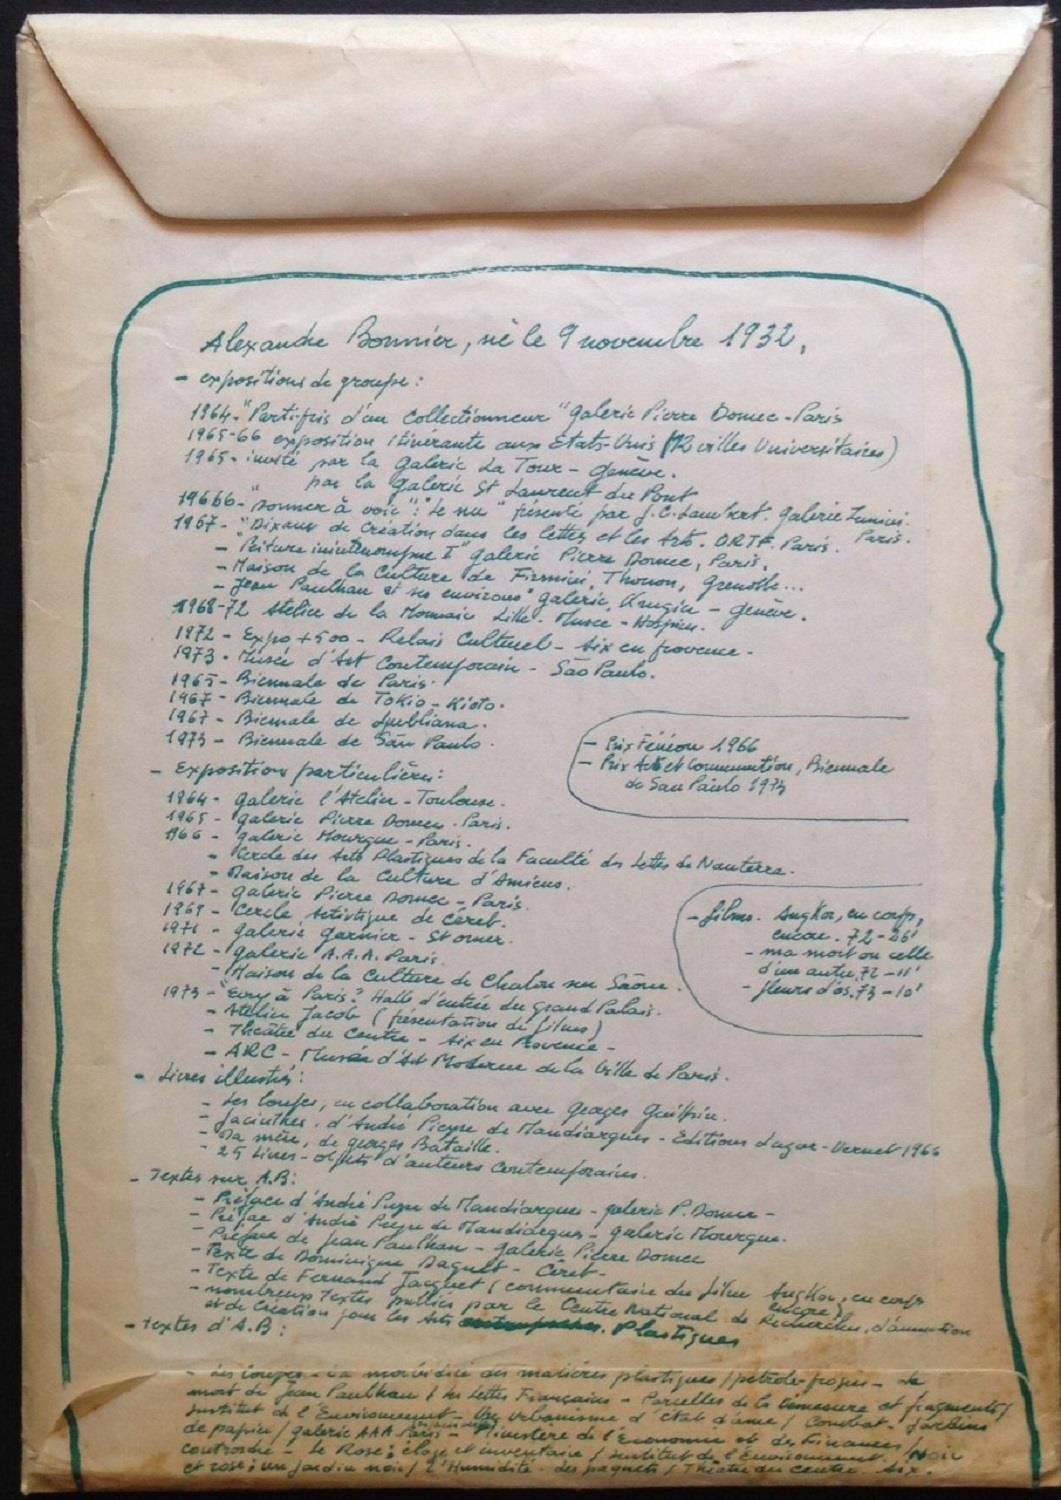 Alexandre Bonnier, né le 9 novembre 1932,
- expositions de groupe :
1964 - "Parti-pris d'un collectionneur" galerie Pierre Domec - Paris
1965-66 exposition itinérante aux Etats-Unis (villes Universitaires)
1965 - invité par la galerie La Tour - genève.
par la galerie St Laurent du Pont
"donner à voir" : "Le nu" présenté par J.C. Lambert. galerie Zunini. Paris.
1967 - "Dix ans de création dans les lettres et les Arts. ORTF. Paris.
- Peinture ininterrompue I" galerie Pierre Domec, Paris.
- Maison de la Culture de Firmini, Thonon, Grenoble...
- Jean Paulhan et ses environs" galerie Krugier - genève.
1968-72 Atelier de la Monnaie Lille. Musée - Hospice.
1972 - Expo +500 - Relais Culturel - Aix en provence -
1973 - Musée d'Art Contemporain - São Paulo.
1965 - Biennale de Paris.
1967 - Biennale de Tokio - Kioto.
1967 - Biennale de Ljubliana.
1973 - Biennale de São Paulo.
- Prix Fénéon 1966
- Prix Arts et Communication, Biennale
de Sao Paulo 1973
- Exposition particulière :
1964 - galerie l'Atelier - Toulouse.
1965 - galerie Pierre Domec - Paris.
1966 - galerie Mourgue - Paris.
- Cercle des Arts Plastiques de la Faculté des Lettres de Nanterre.
- Maison de la Culture d'Amiens.
1967 - galerie Pierre Domec - Paris.
1969 - Cercle Artistique de Céret.
1971 - galerie garnier - St omer.
1972 - galerie A.A.A. Paris.
- Maison de la Culture de Chalon sur Saône.
1973 - "Evry à Paris" Halle d'entrée du Grand Palais.
- Atelier Jacob (présentation de films)
- Théâtre du Centre - Aix en Provence -
- ARC - Musée d'Art Moderne de la Ville de Paris.
- films. Angkor, en corps,
encore. 72 - 26'
- ma mort ou celle
d'un autre. 72 - 11'
- fleurs d'os. 73 - 10'
- Livres illustrés :
- Les loupes, en collaboration avec Georges
- Jacinthes, d'André Pieyre de Mandiargues - Editions Lazar-Vernet 1966
- Ma mère, de georges Bataille.
- 25 Livres-objets d'auteurs contemporains.
- Textes sur A.B :
- Préface d'André Pieyre de Mandiargues - galerie P. Domec -
- Préface d'André Pieyre de Mandiargues - galerie Mourgue.
- Préface de Jean Paulhan - galerie Pierre Domec
- Texte de Dominique Daguet - Céret -
- Texte de Fernand Jacquet (commentaire du film Angkor, en corps encore)
- nombreux Textes publiés par le Centre National de Recherche, d'animation
et de Création pour les Arts Plastiques
- textes d'A.B :
- Les loupes - La morbidité des matières plastiques / - La
mort de Jean Paulhan / Les Lettres Françaises - Parcelles de la démesure et fragments /
Institut de l'Environnement - Un urbanisme d'état d'âme / Combat - Jardins
de papier / galerie AAA Paris - Ministère de l'Economie et des Finances / Noir
- Le Rose : éloge et inventaire / Institut de l'Environnement.
et rose : un jardin noir / L'Humidité - Les paquets / Théâtre du Centre. Aix.